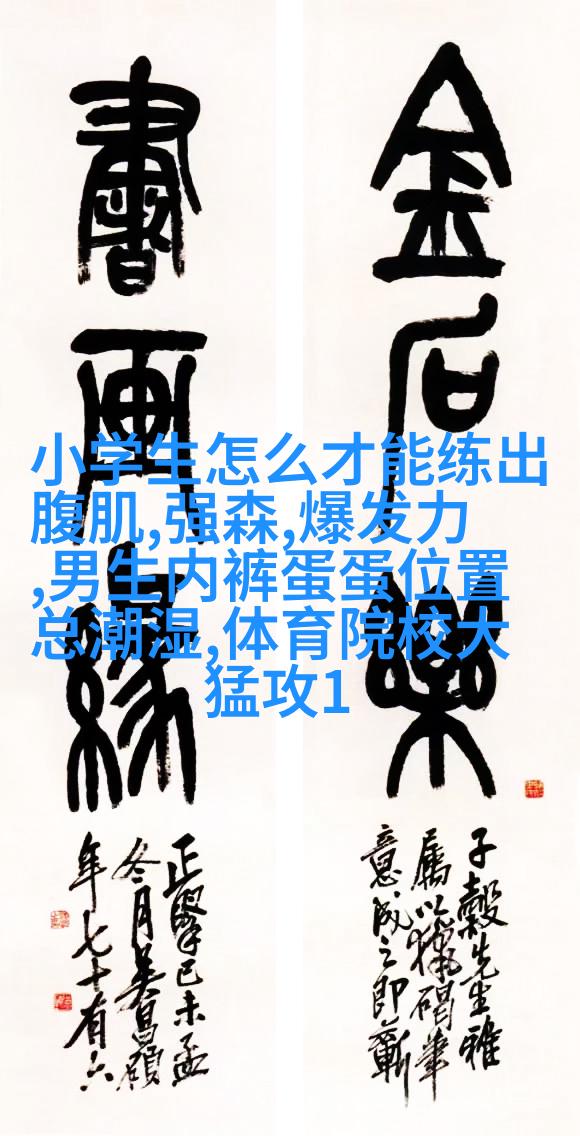 金石樂
子穀先生雅
屬以獵碣筆
意成之即蘄
書畫緣
正擘己未孟
冬月吳昌碩
年七十有六
小学生怎么才能练出
腹肌,强森,爆发力
,男生内裤蛋蛋位置
总潮湿,体育院校大
猛攻1